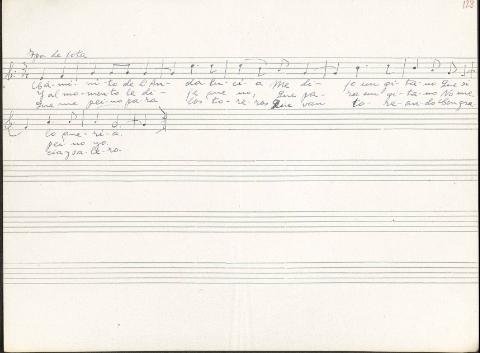 122
Ca-mi-ni-to de l'An-da-lu-ci-a Me di-jo un gi-ta-no Que si
Y al mo-mento le di-je que no, Que pa-ra un gi-ta-no No me
Que me pei-no pa-ra los to-re-ros Que van to-re-an-do Con gra
lo que-rí-a.
pei-no yo.
cia y sa-le-ro.